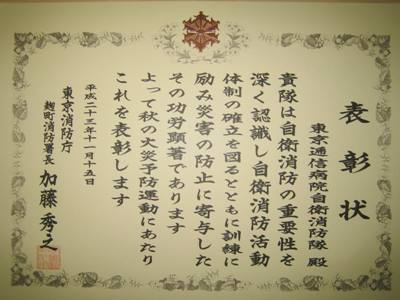 表彰状
東京通信病院自衛消防隊 殿
貴隊は自衛消防の重要性を
深く認識し自衛消防活動
体制の確立を図るとともに訓練に
励み災害の防止に寄与した
その功労顕著であります
よって秋の火災予防運動にあたり
これを表彰します
平成二十三年十一月十五日
東京消防庁
麹町消防署長 加藤秀之